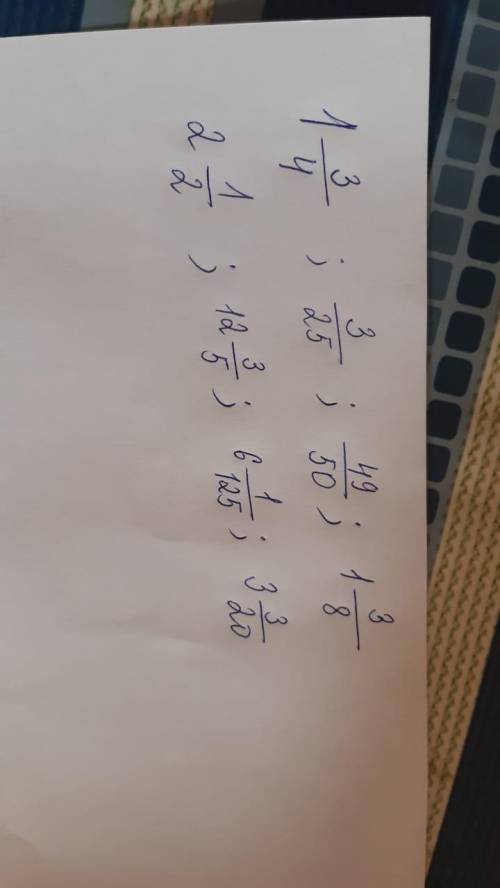 1 3/4 ; 3/25 ; 49/50 ; 1 3/8
2 1/2 ; 12 3/5 ; 6 1/125 ; 3 3/20